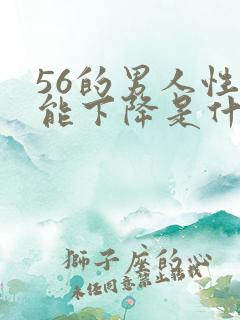 56的男人性
能下降是什
狮子座的心
未经同意禁止转载